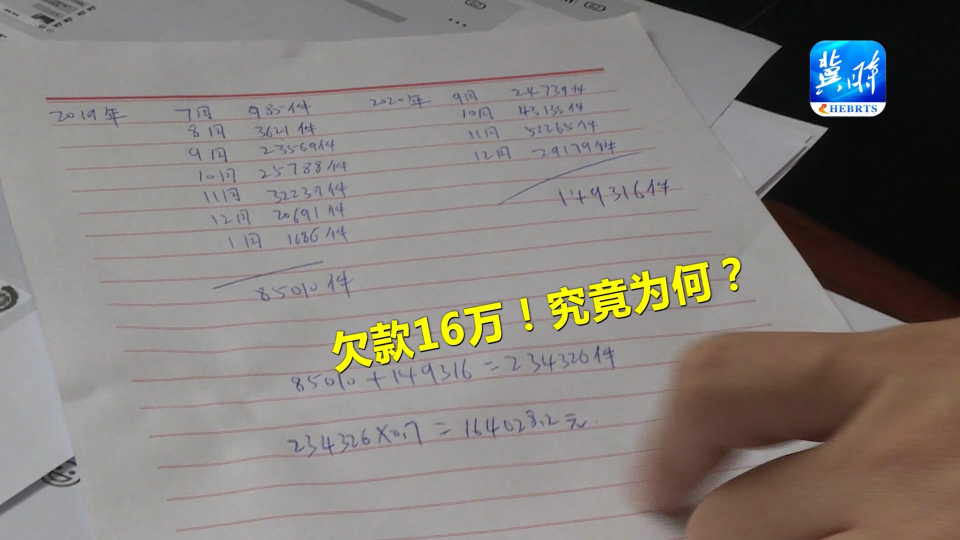 2019年 7月 985件
8月 3621件
9月 23569件
10月 25788件
11月 32239件
12月 20691件
1月 1686件
85010件
2020年 9月 24739件
10月 43133件
11月 52265件
12月 29179件
149316件
85010+149316=234326件
234326×0.7=164028.2元.
欠款16万！究竟为何？
冀时
HEBRTS